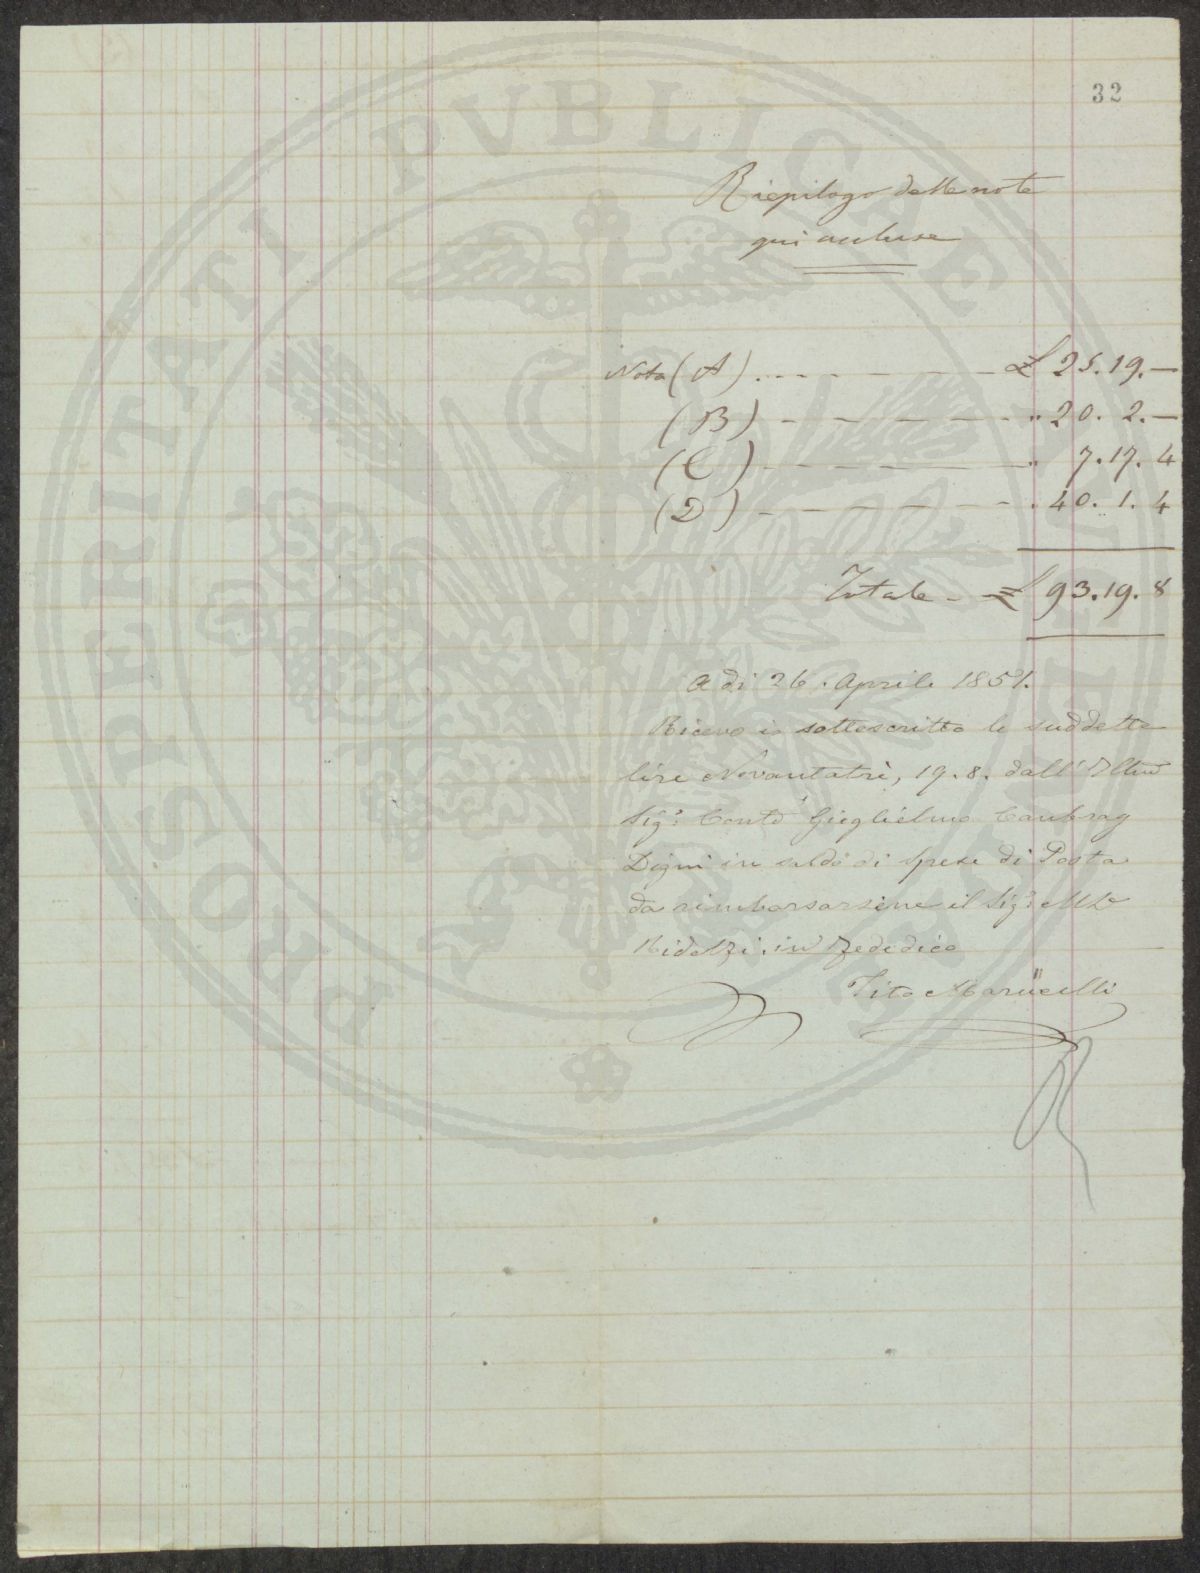 32
Riepilogo delle note
qui accluse
Nota (A) . - - - - - - - £ 25.19.—
(B) - - - - - - - " 20. 2.—
(C) - - - - - - - " 7.17.4
(D) - - - - - - - " 40.1.4
Totale - £ 93.19.8
A dì 26. Aprile 1851.
Ricevo io sottoscritto le suddette
lire Novantatrè, 19.8. dall'Illmo
Sigr Conte Guglielmo Cambray
Digni in saldo di Spese di Posta
da rimborsarsene il Sigr
Ridolfi. in fede dico
Tito Marucelli
PROSPERITATI PVBLICAE AVGENDAE